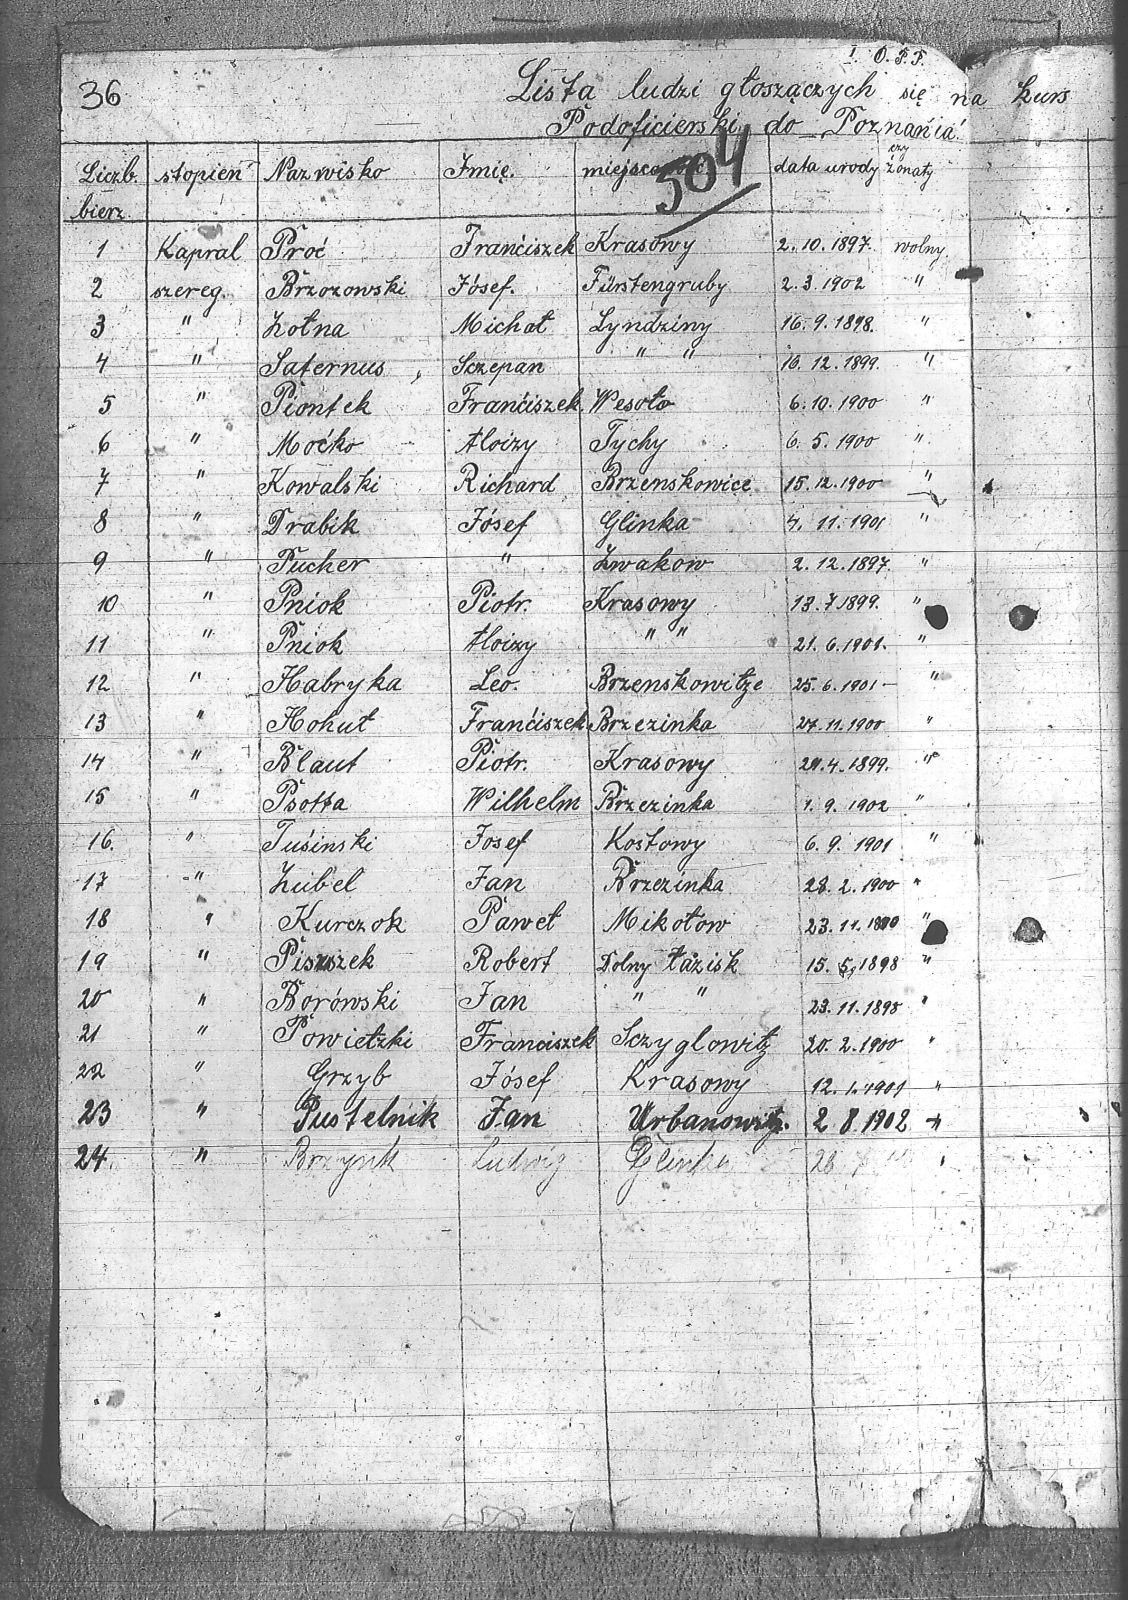 I. O. F. F.
36
Lista ludzi głosząćzych się na kurs
Podoficierski do Poznańia
504
Liczb. bierz. stopień Nazwisko Imię. data urody czy żonaty
1 Kapral Proć Franćiszek Krasowy 2.10.1897. wolny
2 szereg. Brzozowski Jósef. Fürstengruby 2.3.1902 "
3 " Żołna Michał Lyndziny 16.9.1898. "
4 " Saternus, Sczepan " " 16.12.1899. "
5 " Piontek Franćiszek Wesoło 6.10.1900 "
6 " Moćko Aloizy Tychy 6.5.1900 "
7 " Kowalski Richard Brzenskowice 15.12.1900 "
8 " Drabik Jósef Glinka 4.11.1901 "
9 " Pucher " Zwakow 2.12.1897. "
10 " Pniok Piotr. Krasowy 13.7.1899. "
11 " Pniok Aloizy " " 21.6.1901. "
12 " Habryka Leo. Brzenskowitze 25.6.1901 "
13 " Hohut Franćiszek Brzezinka 27.11.1900 "
14 " Blaut Piotr. Krasowy 4.1899. "
15 " Psotta Wilhelm Brzezinka 1.9.1902 "
16. " Tuśinski Josef Kostowy 6.9.1901 "
17 " Zubel Jan Brzezinka 28.2.1900 "
18 " Kurczok Paweł Mikołow 23.11. "
19 " Robert Dolny Łazisk 15. 1898 "
20 " Borówski Jan " " 23.11.1898 "
21 " Powietzki Franciszek Sczyglowitz 20.2.1900 "
22 " Grzyb Jósef Krasowy 12.1.1901 "
23 " Pustelnik Jan Urbanowitz. 2 8.1902 "
24. " Brzynk Ludwig Glinka 28 "